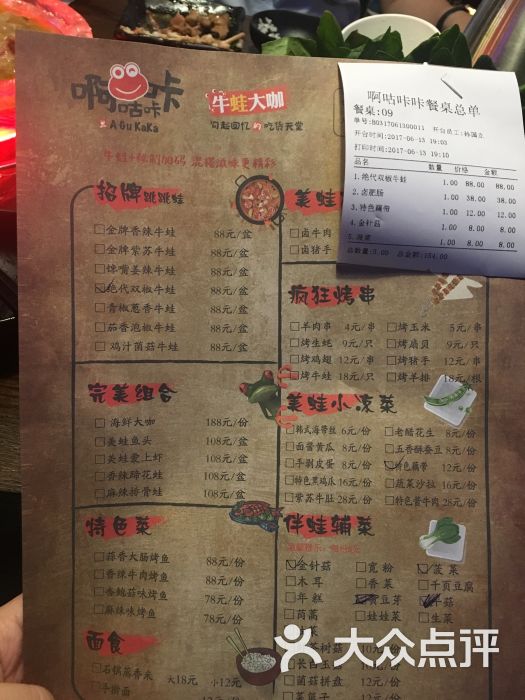 啊咕咔咔
A Gu KaKa
牛蛙大咖
勾起回忆的吃货天堂
啊咕咔咔餐桌总单
餐桌:09
单号:B0317061300011 开台员工:
开台时间:2017-06-13 19:03
打印时间:2017-06-13 19:10
品名 数量 价格 金额
1.绝代双椒牛蛙 1.00 88.00 88.00
2.卤肥肠 1.00 38.00 38.00
3.特色藕带 1.00 12.00 12.00
4.金针菇 1.00 8.00 8.00
5. 1.00 8.00 8.00
总数量:5.00 总金额:154.00
招牌跳跳蛙
金牌香辣牛蛙 88元/盆
金牌紫苏牛蛙 88元/盆
馋嘴姜辣牛蛙 88元/盆
绝代双椒牛蛙 88元/盆
青椒葱香牛蛙 88元/盆
茄香泡椒牛蛙 88元/盆
鸡汁菌菇牛蛙 88元/盆
完美组合
海鲜大咖 188元/份
美蛙鱼头 108元/盆
美蛙爱上虾 108元/盆
香辣蹄花蛙 108元/盆
麻辣排骨蛙 108元/盆
特色菜
蒜香大肠烤鱼 88元/份
香辣牛肉烤鱼 88元/份
香鲍菇味烤鱼 78元/份
麻辣味烤鱼 78元/份
面食
石锅蒸香米 大18元 小12元
手擀面
美蛙
卤牛肉
卤猪手
疯狂烤串
羊肉串 4元/串 烤玉米 5元/串
烤生蚝 9元/只 烤扇贝 9元/只
烤鸡翅 12元/串 烤猪手 12元/串
烤牛蛙 18元/只 烤羊排 18元/根
美蛙小凉菜
韩式海带丝 6元/份 老醋花生 8元/份
面酱黄瓜 8元/份 五香酥蚕豆 8元/份
手剥皮蛋 8元/份 特色藕带 12元/份
特色黑鸡瓜 16元/份 蔬菜沙拉 16元/份
紫苏牛肚 28元/份 特色酱牛肉 28元/份
伴蛙辅菜
金针菇 宽粉 菠菜
木耳 香菜 千页豆腐
年糕 黄豆芽 牛菇
茼蒿 娃娃菜 生菜
茶树菇 10元/份
长白
菌菇拼盘 12元/份
大众点评